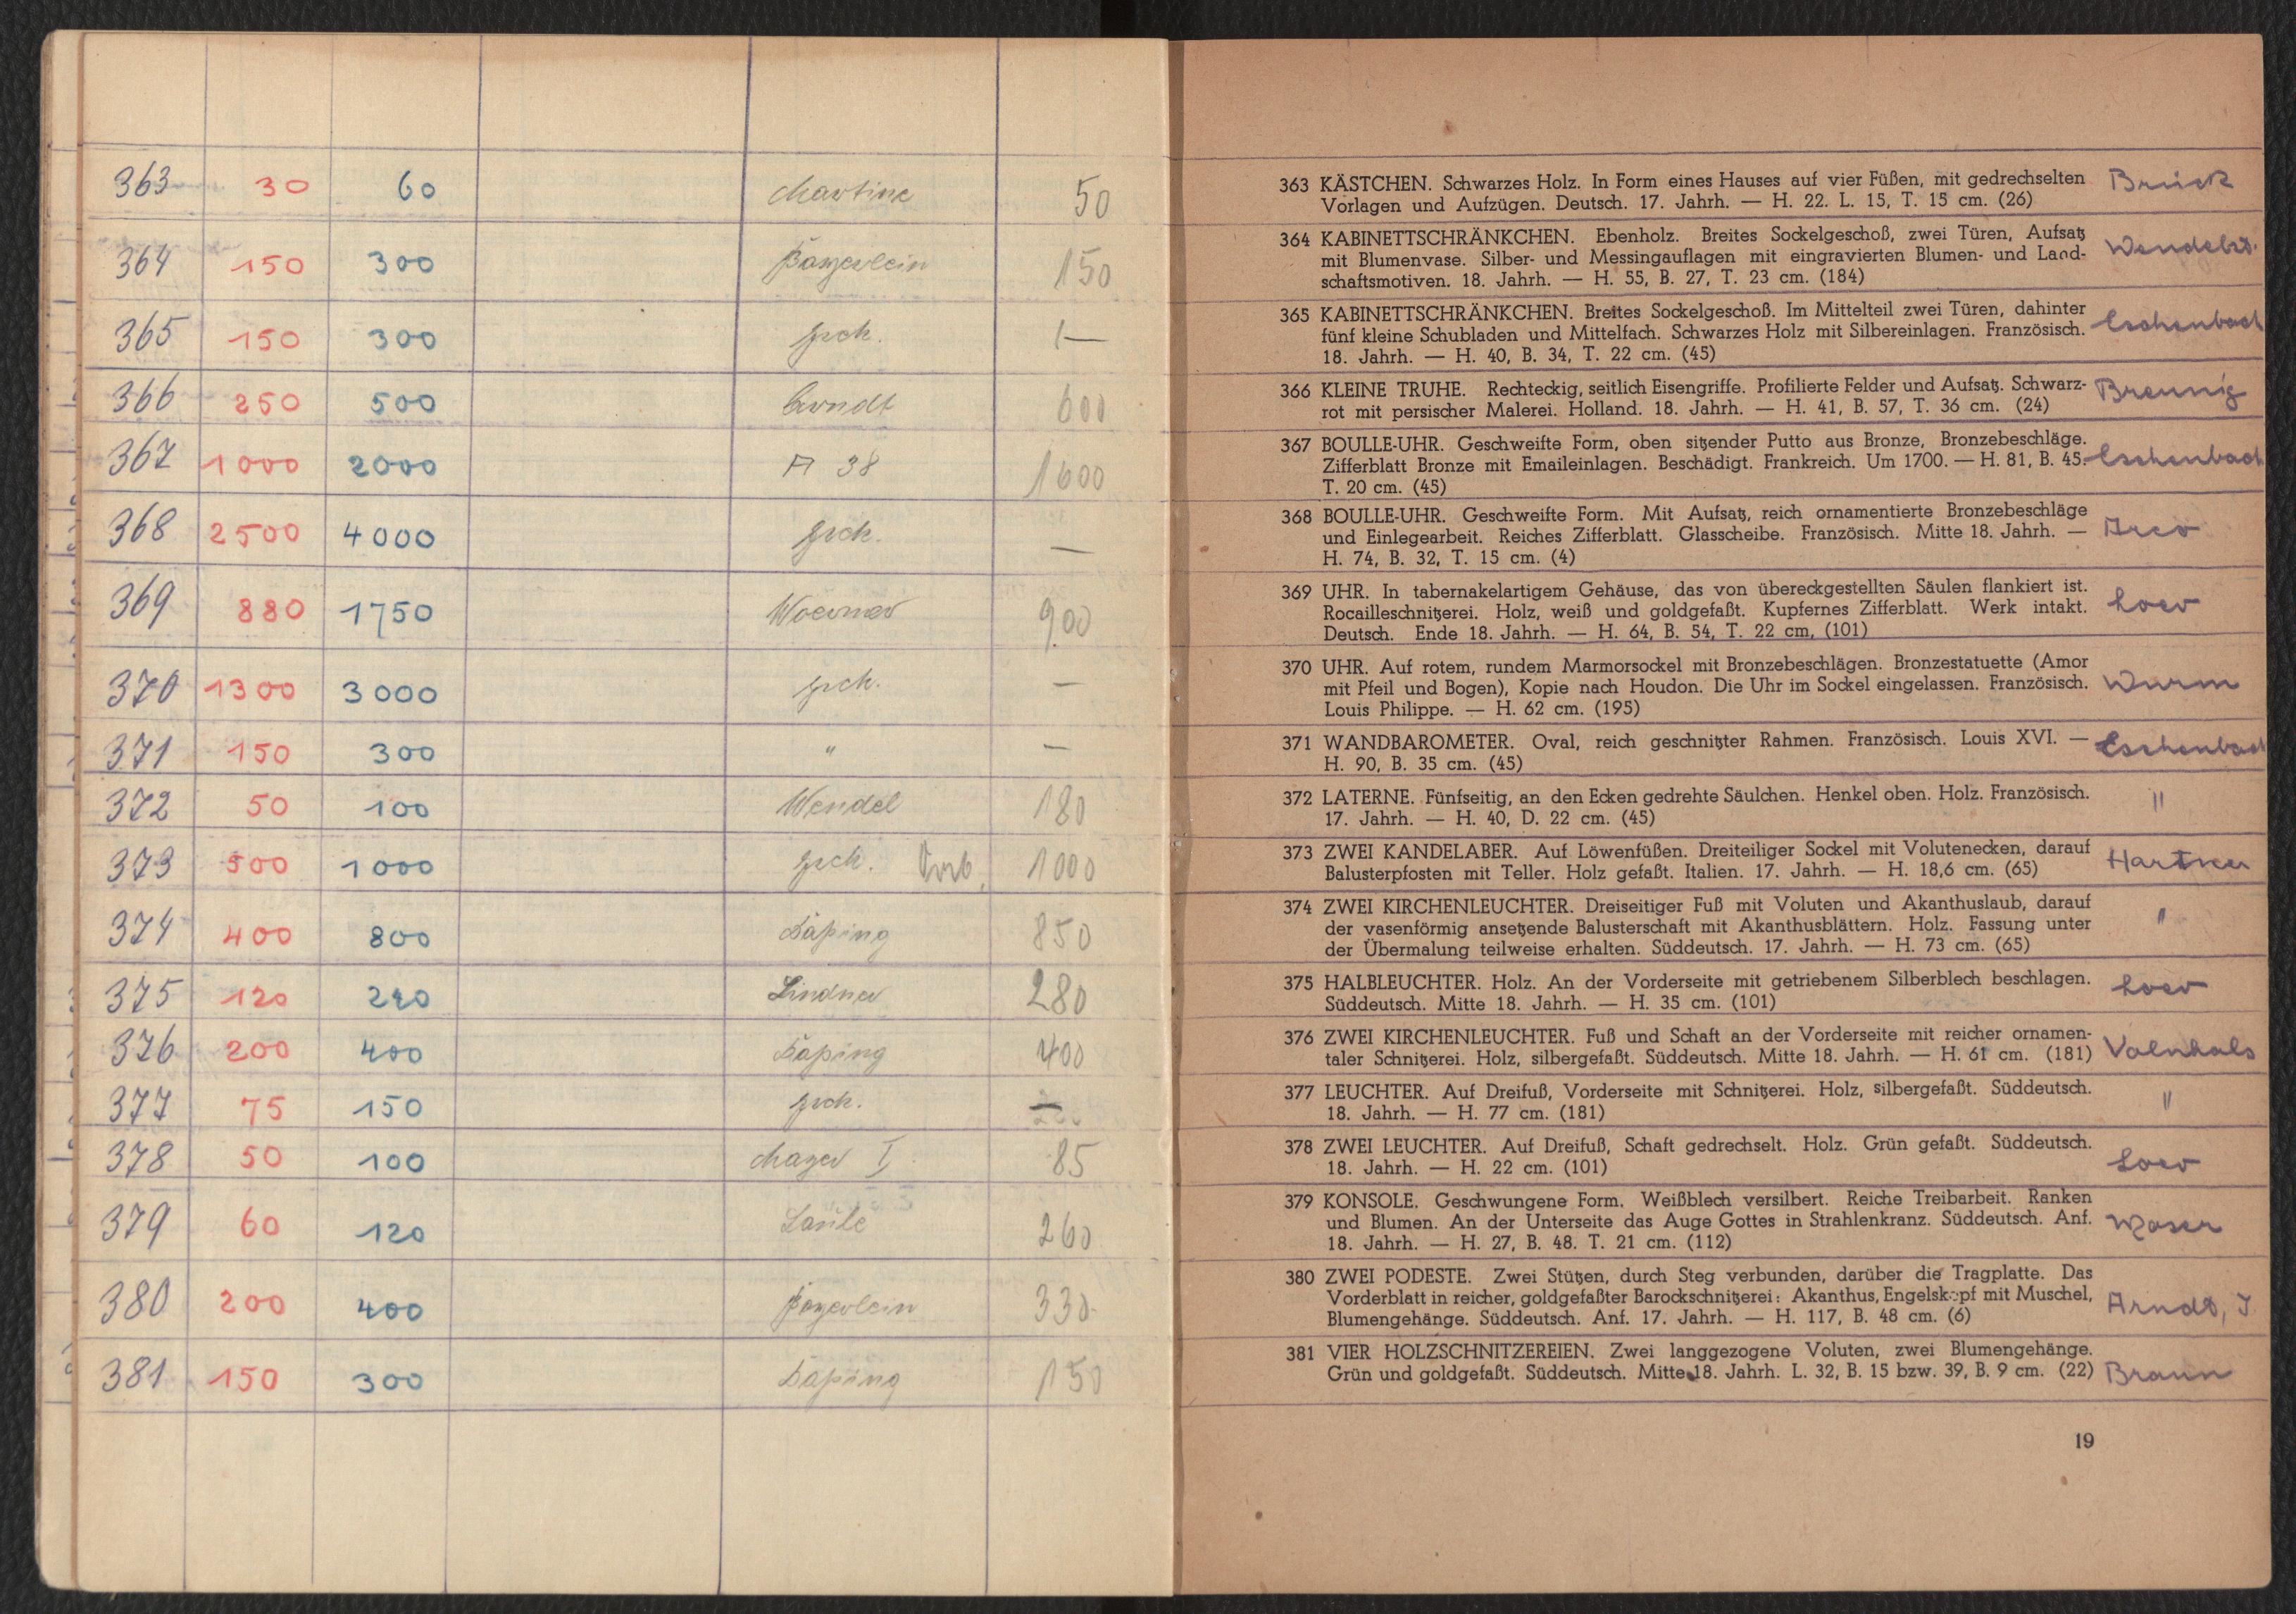 363 30 60 Martine 50
364 150 300 Bayerlein 150
365 150 300 zrck. —
366 250 500 Arndt 600
367 1000 2000 A 38 1600
368 2500 4000 zrck. —
369 880 1750 Woerner 900
370 1300 3000 zrck. —
371 150 300 " —
372 50 100 Wendel 180
373 500 1000 zrck. 1000
374 400 800 850
375 120 240 Lindner 280
376 200 400 400
377 75 150 zrck. —
378 50 100 Mayer I 85
379 60 120 260
380 200 400 Bayerlein 330
381 150 300 150
363 KÄSTCHEN. Schwarzes Holz. In Form eines Hauses auf vier Füßen, mit gedrechselten Brück
Vorlagen und Aufzügen. Deutsch. 17. Jahrh. — H. 22. L. 15, T. 15 cm. (26)
364 KABINETTSCHRÄNKCHEN. Ebenholz. Breites Sockelgeschoß, zwei Türen, Aufsatz
mit Blumenvase. Silber- und Messingauflagen mit eingravierten Blumen- und Land-
schaftsmotiven. 18. Jahrh. — H. 55, B. 27, T. 23 cm. (184)
365 KABINETTSCHRÄNKCHEN. Breites Sockelgeschoß. Im Mittelteil zwei Türen, dahinter
fünf kleine Schubladen und Mittelfach. Schwarzes Holz mit Silbereinlagen. Französisch. Eschenbach
18. Jahrh. — H. 40, B. 34, T. 22 cm. (45)
366 KLEINE TRUHE. Rechteckig, seitlich Eisengriffe. Profilierte Felder und Aufsatz. Schwarz- Breunig
rot mit persischer Malerei. Holland. 18. Jahrh. — H. 41, B. 57, T. 36 cm. (24)
367 BOULLE-UHR. Geschweifte Form, oben sitzender Putto aus Bronze, Bronzebeschläge.
Zifferblatt Bronze mit Emaileinlagen. Beschädigt. Frankreich. Um 1700. — H. 81, B. 45. Eschenbach
T. 20 cm. (45)
368 BOULLE-UHR. Geschweifte Form. Mit Aufsatz, reich ornamentierte Bronzebeschläge
und Einlegearbeit. Reiches Zifferblatt. Glasscheibe. Französisch. Mitte 18. Jahrh. — Arco
H. 74, B. 32, T. 15 cm. (4)
369 UHR. In tabernakelartigem Gehäuse, das von übereckgestellten Säulen flankiert ist.
Rocailleschnitzerei. Holz, weiß und goldgefaßt. Kupfernes Zifferblatt. Werk intakt. Loev
Deutsch. Ende 18. Jahrh. — H. 64, B. 54, T. 22 cm, (101)
370 UHR. Auf rotem, rundem Marmorsockel mit Bronzebeschlägen. Bronzestatuette (Amor
mit Pfeil und Bogen), Kopie nach Houdon. Die Uhr im Sockel eingelassen. Französisch. Wurm
Louis Philippe. — H. 62 cm. (195)
371 WANDBAROMETER. Oval, reich geschnitzter Rahmen. Französisch. Louis XVI. — Eschenbach
H. 90, B. 35 cm. (45)
372 LATERNE. Fünfseitig, an den Ecken gedrehte Säulchen. Henkel oben. Holz. Französisch. "
17. Jahrh. — H. 40, D. 22 cm. (45)
373 ZWEI KANDELABER. Auf Löwenfüßen. Dreiteiliger Sockel mit Volutenecken, darauf
Balusterpfosten mit Teller. Holz gefaßt. Italien. 17. Jahrh. — H. 18,6 cm. (65)
374 ZWEI KIRCHENLEUCHTER. Dreiseitiger Fuß mit Voluten und Akanthuslaub, darauf
der vasenförmig ansetzende Balusterschaft mit Akanthusblättern. Holz. Fassung unter "
der Übermalung teilweise erhalten. Süddeutsch. 17. Jahrh. — H. 73 cm. (65)
375 HALBLEUCHTER. Holz. An der Vorderseite mit getriebenem Silberblech beschlagen. Loev
Süddeutsch. Mitte 18. Jahrh. — H. 35 cm. (101)
376 ZWEI KIRCHENLEUCHTER. Fuß und Schaft an der Vorderseite mit reicher ornamen-
taler Schnitzerei. Holz, silbergefaßt. Süddeutsch. Mitte 18. Jahrh. — H. 61 cm. (181) Volnhals
377 LEUCHTER. Auf Dreifuß, Vorderseite mit Schnitzerei. Holz, silbergefaßt. Süddeutsch. "
18. Jahrh. — H. 77 cm. (181)
378 ZWEI LEUCHTER. Auf Dreifuß, Schaft gedrechselt. Holz. Grün gefaßt. Süddeutsch.
18. Jahrh. — H. 22 cm. (101) Loev
379 KONSOLE. Geschwungene Form. Weißblech versilbert. Reiche Treibarbeit. Ranken
und Blumen. An der Unterseite das Auge Gottes in Strahlenkranz. Süddeutsch. Anf. Moser
18. Jahrh. — H. 27, B. 48. T. 21 cm. (112)
380 ZWEI PODESTE. Zwei Stützen, durch Steg verbunden, darüber die Tragplatte. Das
Vorderblatt in reicher, goldgefaßter Barockschnitzerei: Akanthus, Engelskopf mit Muschel, Arndt, J.
Blumengehänge. Süddeutsch. Anf. 17. Jahrh. — H. 117, B. 48 cm. (6)
381 VIER HOLZSCHNITZEREIEN. Zwei langgezogene Voluten, zwei Blumengehänge.
Grün und goldgefaßt. Süddeutsch. Mitte 18. Jahrh. L. 32, B. 15 bzw. 39, B. 9 cm. (22) Braun
19